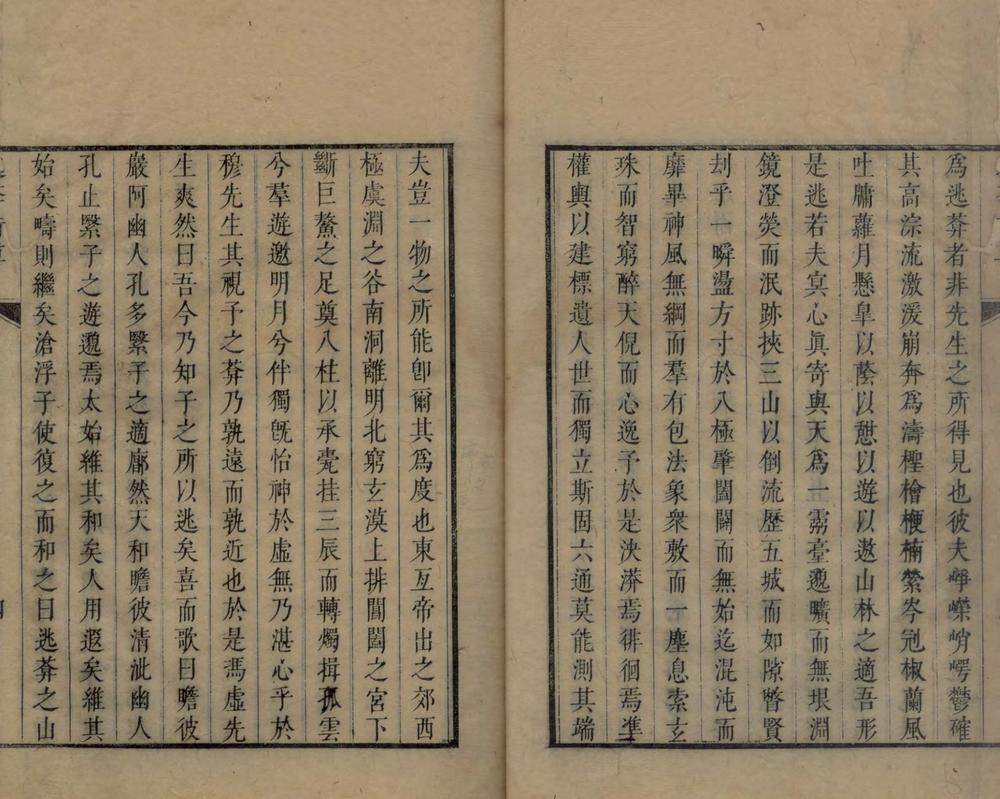 爲逃莽者非先生之所得見也彼夫崢嶸峭崿鬱確
其高淙流激湲崩奔爲濤檉檜楩楠縈岑冠椒蘭風
吐牖蘿月懸皐以蔭以憇以遊以遨山林之適吾形
是逃若夫冥心眞寄與天爲一靈臺邈曠而無垠淵
鏡澄熒而泯跡挾三山以倒流歷五城而如隙瞥賢
刦乎一瞬盪方寸於八極肇闔闢而無始迄混沌而
靡畢神風無綱而羣有包法象衆敷而一塵息索玄
珠而智窮醉天倪而心逸予於是泱漭焉徘徊焉凖
權輿以建標遺人世而獨立斯固六通莫能測其端
夫豈一物之所能卽爾其爲度也東亙帝出之郊西
極虞淵之谷南洞離明北窮玄漠上排閶闔之宮下
斷巨鰲之足奠八柱以承甍挂三辰而轉燭揖孤雲
兮羣遊邀明月兮伴獨旣怡神於虛無乃湛心乎於
穆先生其視予之莽乃孰遠而孰近也於是馮虛先
生爽然曰吾今乃知子之所以逃矣喜而歌曰瞻彼
巖阿幽人孔多繄子之適廓然天和瞻彼清泚幽人
孔止繄子之遊邈焉太始維其和矣人用遐矣維其
始矣疇則繼矣滄浮子使復之而和之曰逃莽之山